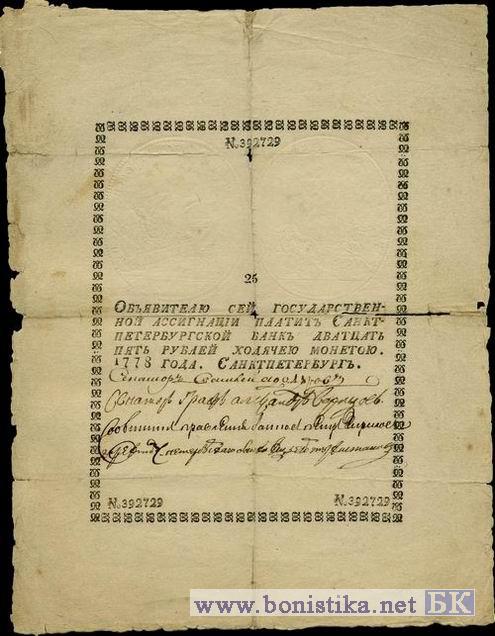 №392729
25
Объявителю сей государствен-
ной ассигнаціи платитъ Санкт-
петербургской банкъ дватцать
пять рублей ходячею монетою.
1778 года. Санктпетербургъ.
Сенаторъ
Сенаторъ Графъ Александръ Воронцовъ
Советникъ правления банковъ
№392729
№392729
www.bonistika.net БК